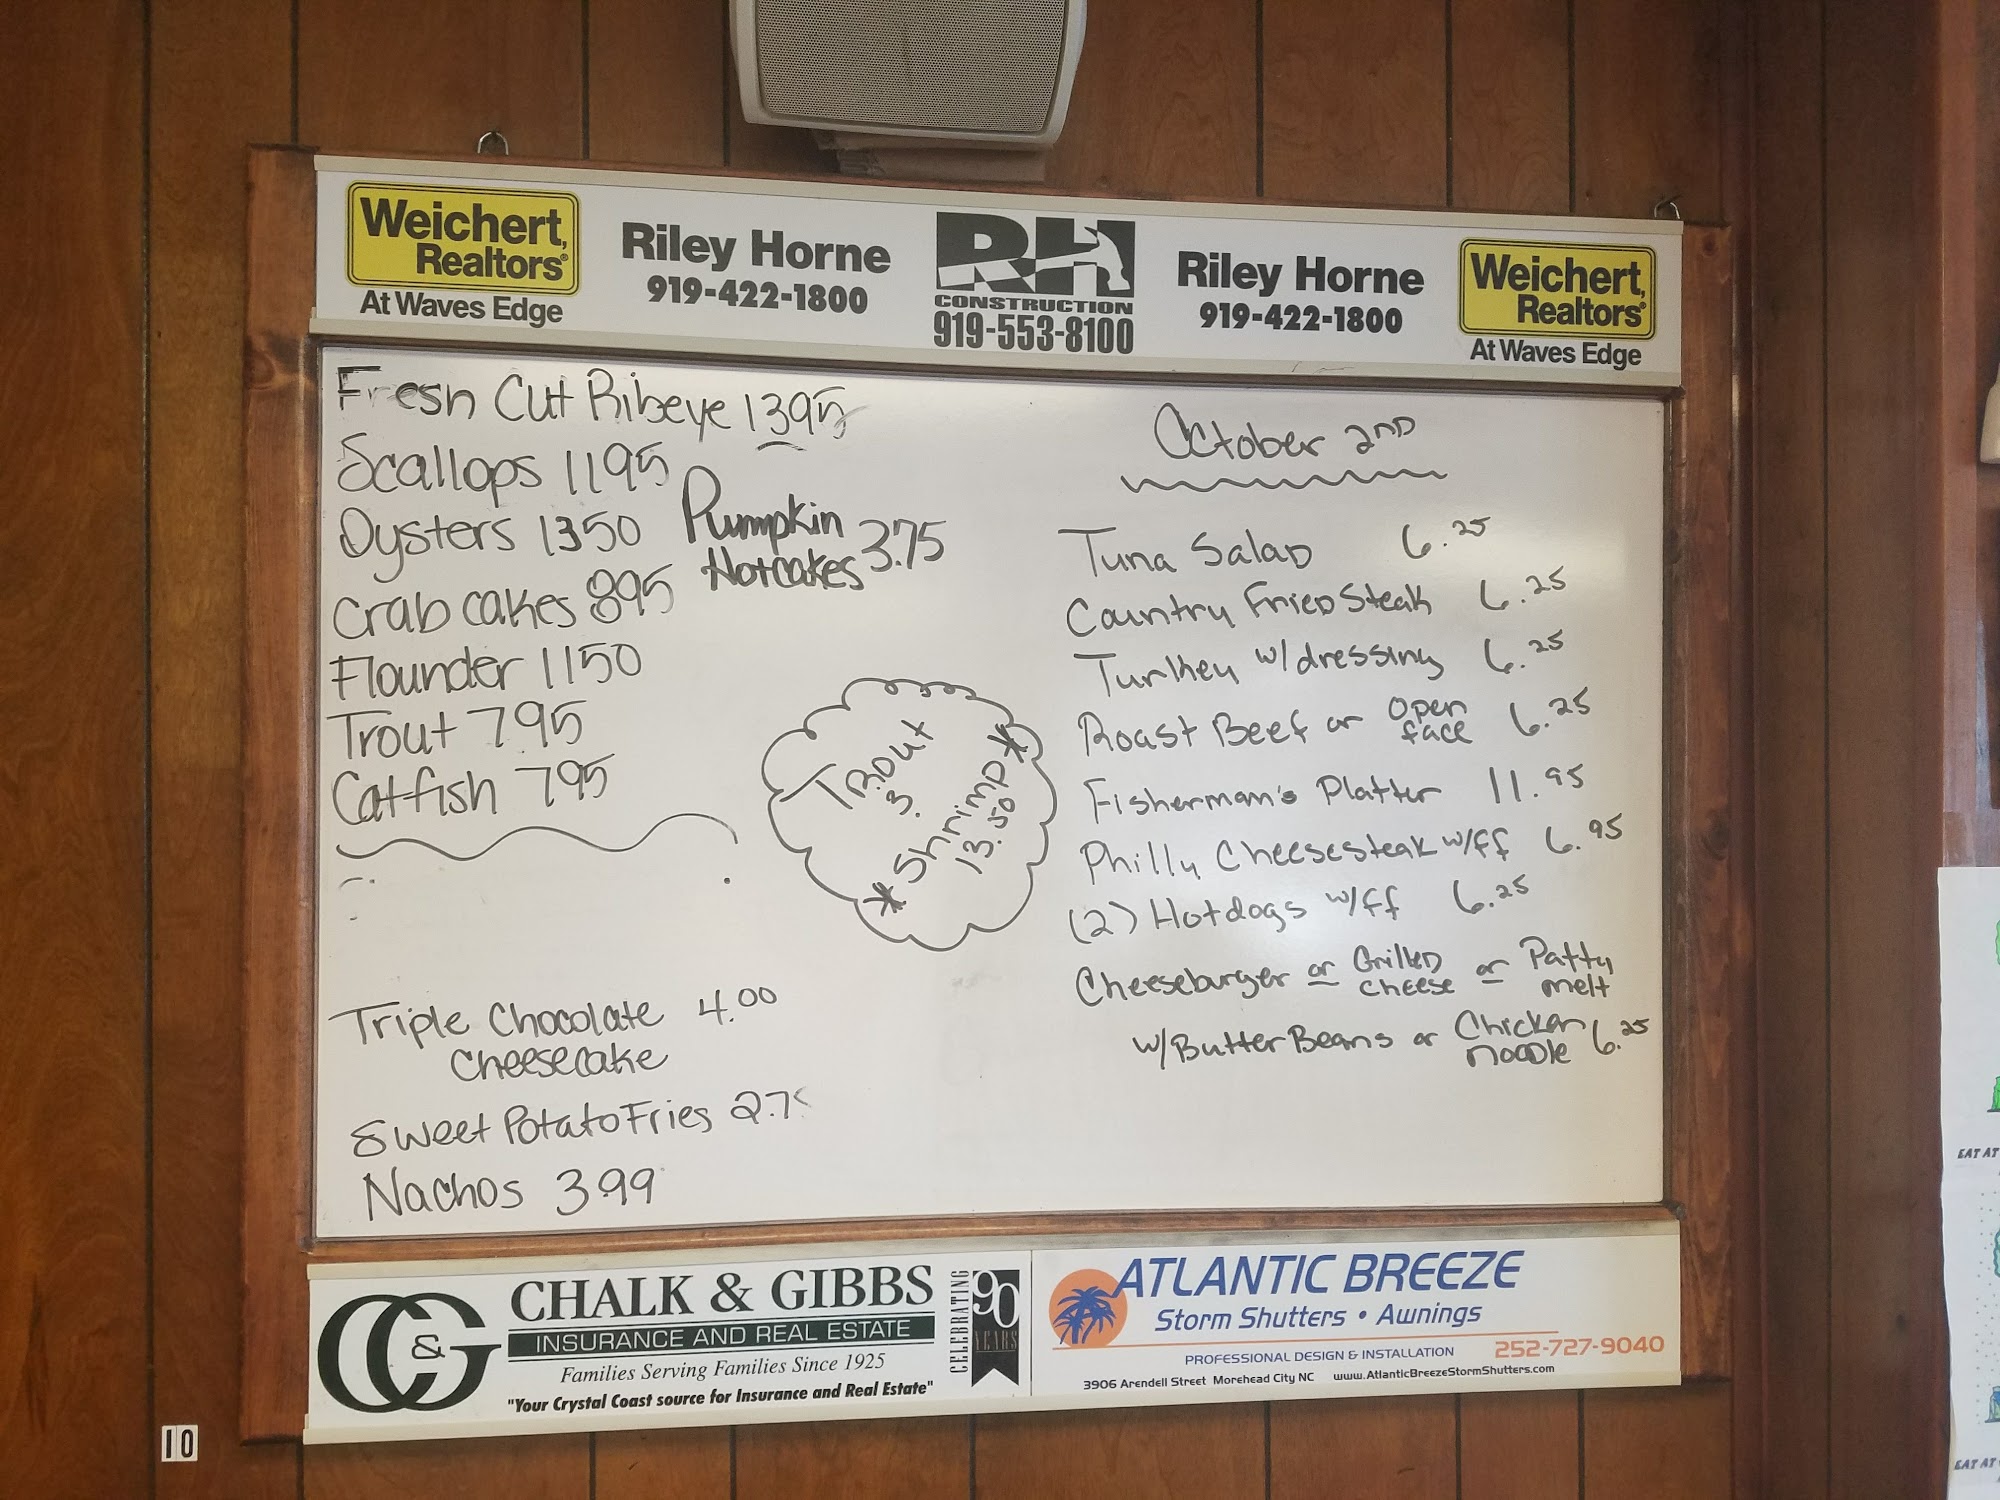 Weichert,
Realtors®
At Waves Edge
Riley Horne
919-422-1800
RH
CONSTRUCTION
919-553-8100
Riley Horne
919-422-1800
Weichert,
Realtors®
At Waves Edge
Fresh Cut Ribeye 1395
Scallops 1195
Oysters 1350
Crab cakes 895
Flounder 1150
Trout 795
Catfish 795
Pumpkin
Hotcakes 3.75
Trout
3.
*Shrimp*
13.50
Triple Chocolate 4.00
Cheesecake
Sweet Potato Fries 2.75
Nachos 3.99
October 2ND
Tuna Salad 6.25
Country Fried Steak 6.25
Turkey w/dressing 6.25
Roast Beef or Open face 6.25
Fisherman's Platter 11.95
Philly Cheesesteak w/ff 6.95
(2) Hotdogs w/ff 6.25
Cheeseburger or Grilled cheese or Patty melt
w/Butter Beans or Chicken noodle 6.25
C&G
CHALK & GIBBS
INSURANCE AND REAL ESTATE
Families Serving Families Since 1925
"Your Crystal Coast source for Insurance and Real Estate"
CELEBRATING
90
YEARS
ATLANTIC BREEZE
Storm Shutters • Awnings
252-727-9040
PROFESSIONAL DESIGN & INSTALLATION
3906 Arendell Street Morehead City NC www.AtlanticBreezeStormShutters.com
10
EAT AT
EAT AT